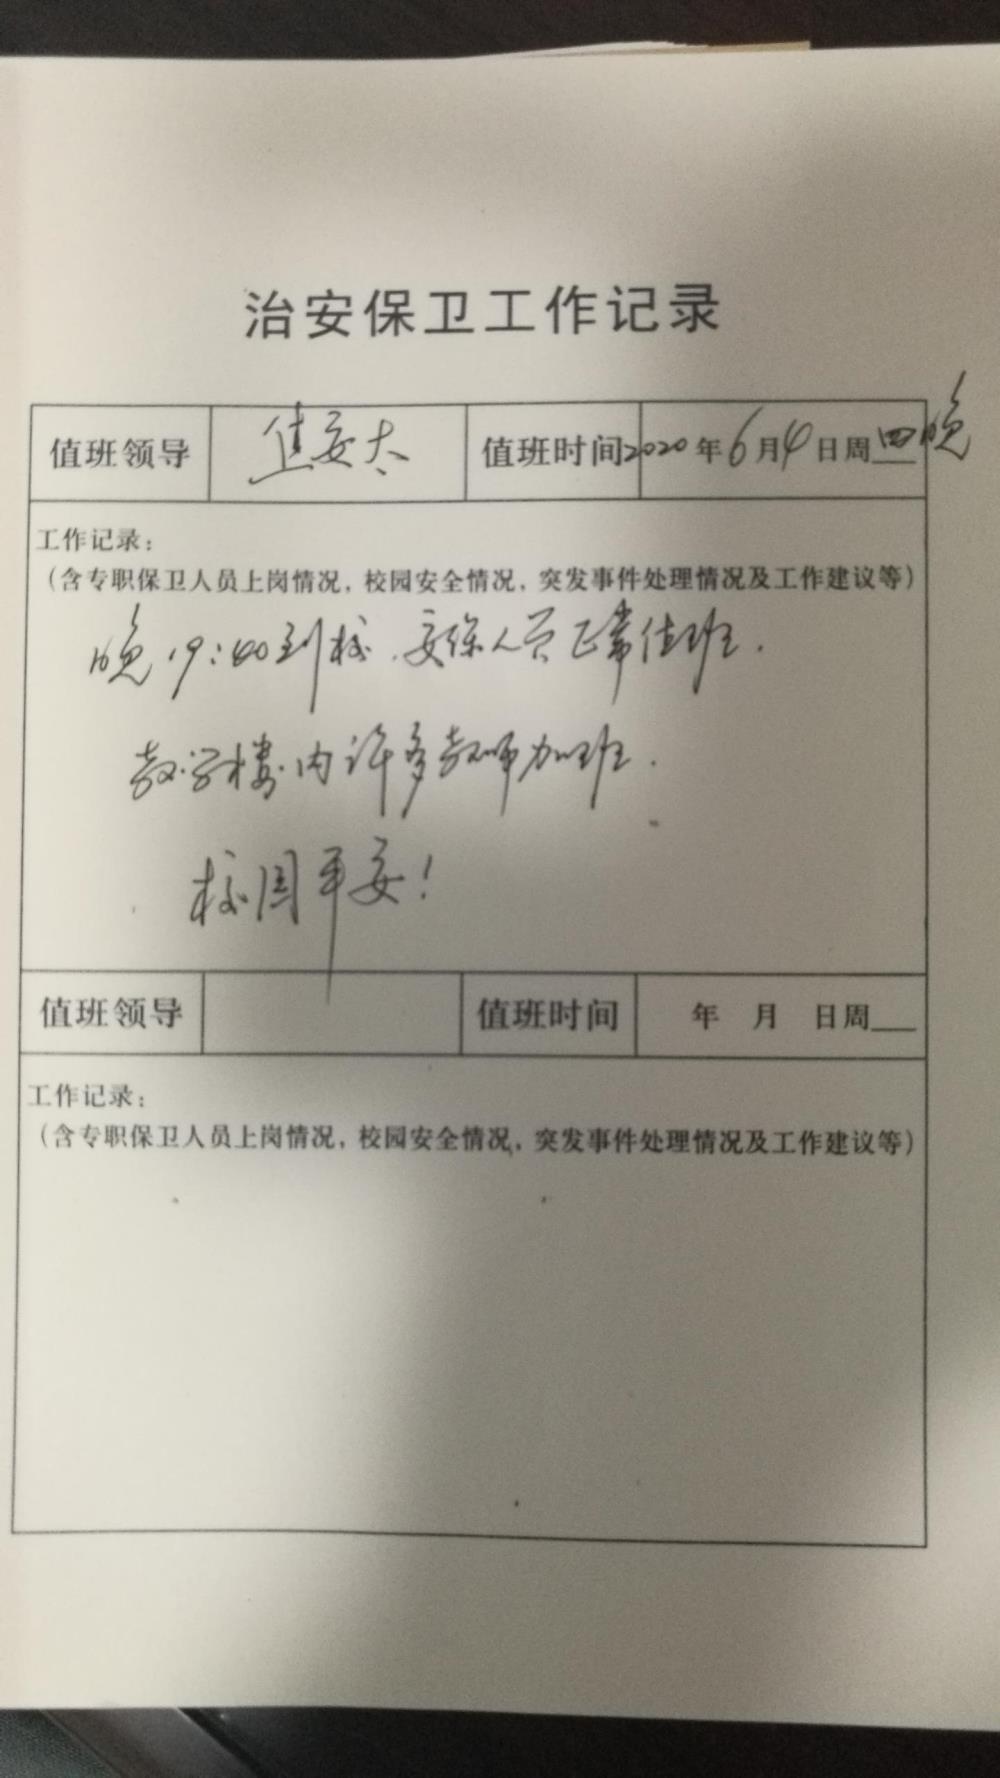 治安保卫工作记录
值班领导 焦安太 值班时间 2020年6月4日周四晚
工作记录：
（含专职保卫人员上岗情况，校园安全情况，突发事件处理情况及工作建议等）
晚19:40到校，安保人员正常值班.
教学楼内许多教师加班.
校园平安！
值班领导 值班时间 年 月 日周
工作记录：
（含专职保卫人员上岗情况，校园安全情况，突发事件处理情况及工作建议等）